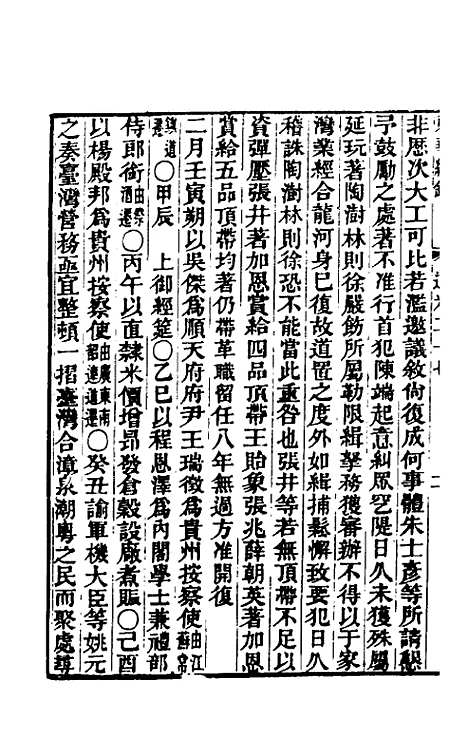 非歷次大工可比若濫邀議敘尙復成何事體朱士彥等所請懇
予鼓勵之處著不准行首犯陳端起意糾眾空隄日久未獲殊屬
延玩著陶澍林則徐嚴飭所屬勒限緝拏務獲審辦不得以于家
灣業經合龍河身已復故道置之度外如緝捕鬆懈致要犯日久
稽誅陶澍林則徐恐不能當此重咎也張井等若無頂帶不足以
資彈壓張井著加恩賞給四品頂帶王貽象張兆薛朝英著加恩
賞給五品頂帶均著仍帶革職留任八年無過方准開復
二月壬寅朔以吳傑爲順天府府尹王瑞徵爲貴州按察使由江蘇常
鎮道遷○甲辰　上御經筵○乙巳以程恩澤爲內閣學士兼禮部
侍郎銜由祭酒遷○丙午以直隸米價增昂發倉穀設廠煮賑○己酉
以楊殿邦爲貴州按察使由廣東南韶連道遷○癸丑諭軍機大臣等姚元
之奏臺灣營務亟宜整頓一摺臺灣合漳泉潮粵之民而聚處